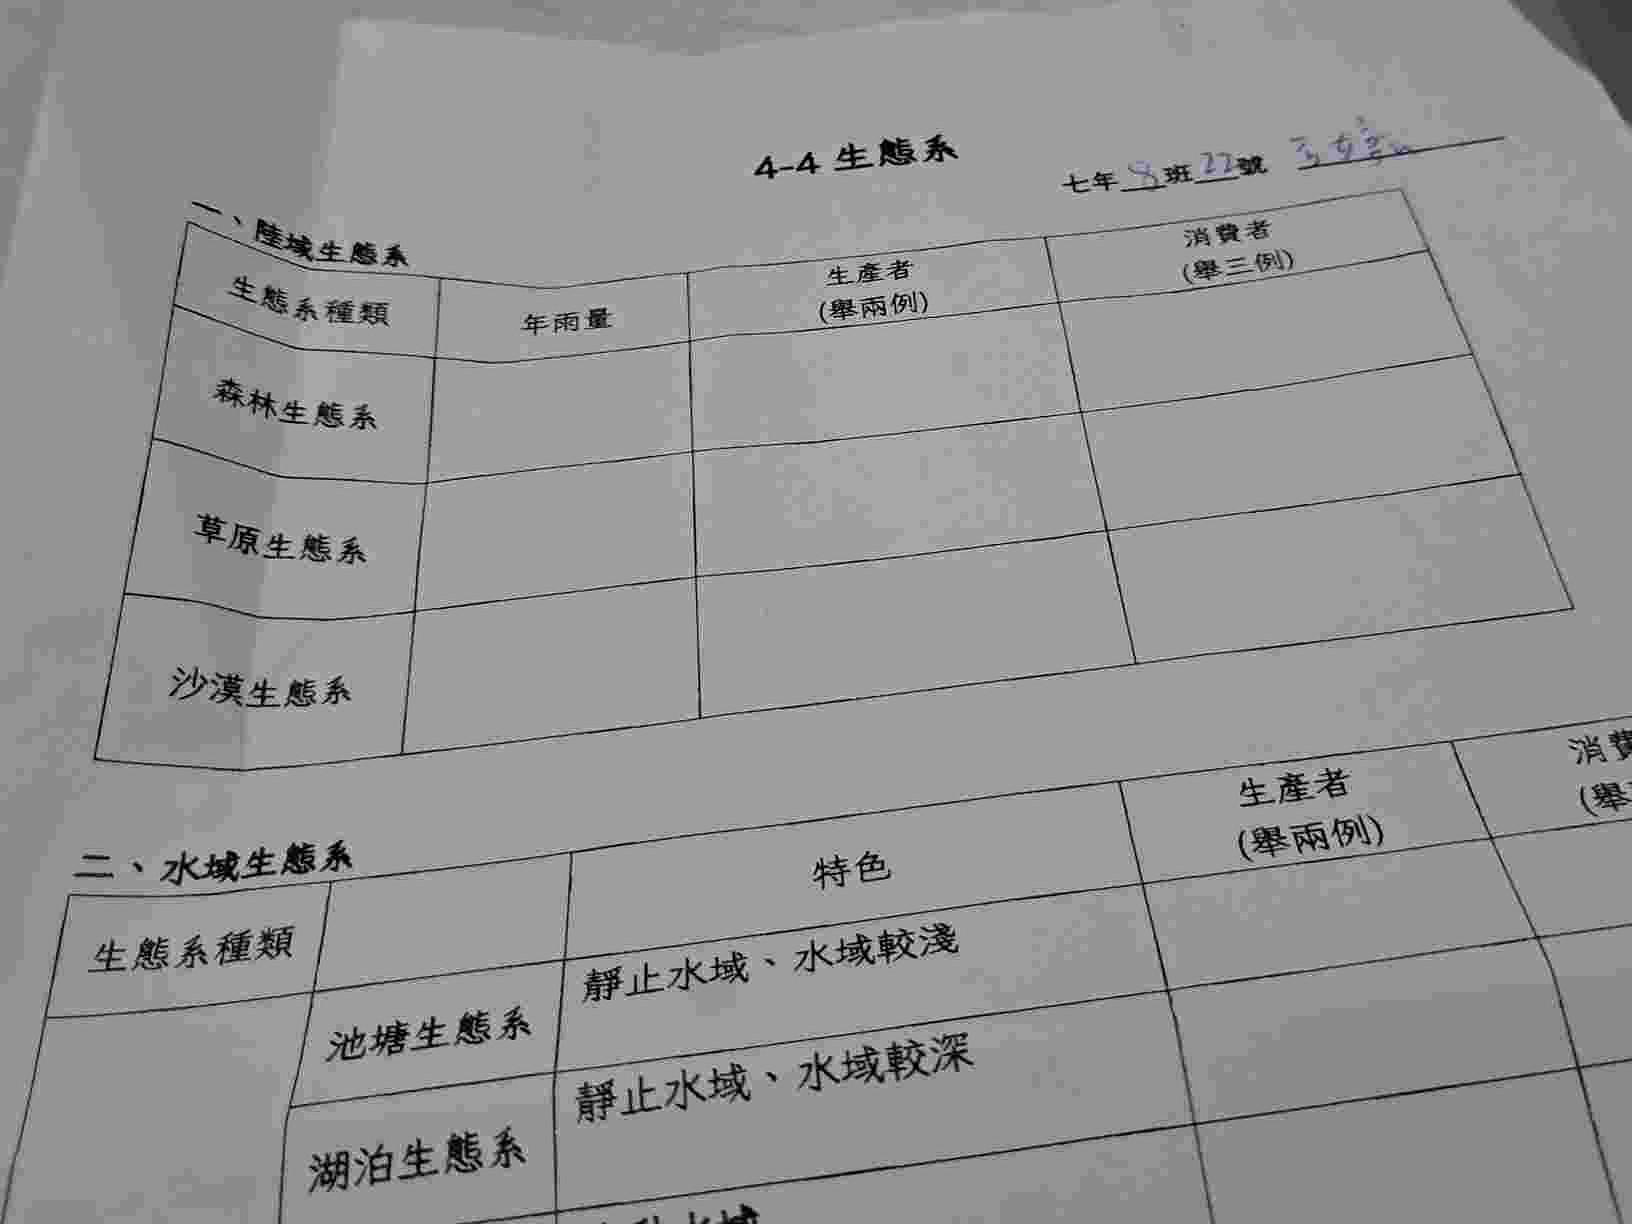 4-4 生態系
七年 8 班 22 號
一、陸域生態系
生態系種類 年雨量 生產者 (舉兩例) 消費者 (舉三例)
森林生態系
草原生態系
沙漠生態系
二、水域生態系
生態系種類 特色 生產者 (舉兩例) 消費 (舉
池塘生態系 靜止水域、水域較淺
湖泊生態系 靜止水域、水域較深
水域